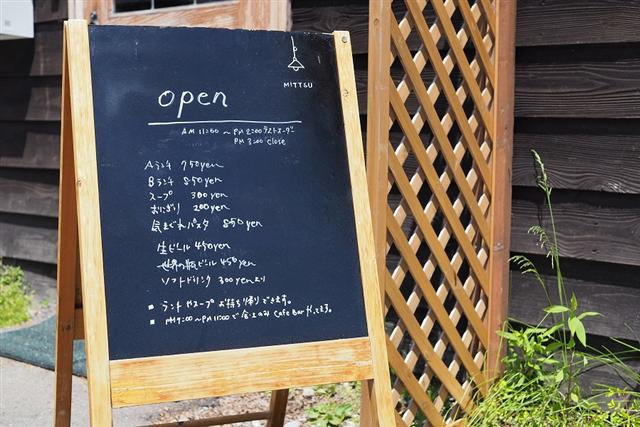 MITTSU
open
AM 11:00 〜 PM 2:00 ラストオーダー
PM 3:00 close
Aランチ 750yen
Bランチ 850yen
スープ 300yen
おにぎり 200yen
気まぐれパスタ 850yen
生ビール 450yen
世界の瓶ビール 450yen
ソフトドリンク 300yenより
■ ランチやスープお持ち帰りできます。
■ PM 7:00 〜 PM 11:00で金土のみ Cafe Bar してます。